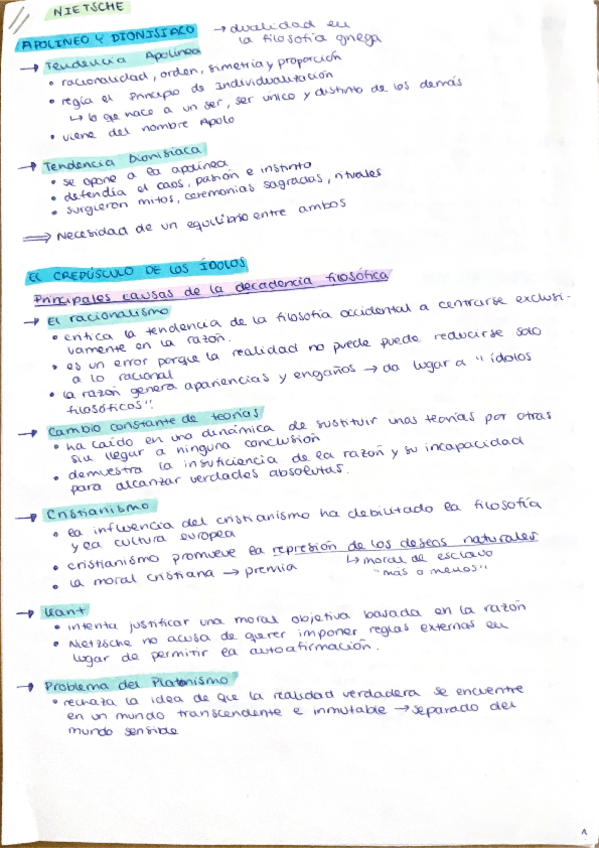 NIETSCHE
APOLINEO Y DIONISIACO → dualidad en
la filosofía griega
→ Tendencia Apolínea
• racionalidad, orden, simetría y proporción
• regía el Principio de Individualización
↳ lo que hace a un ser, ser único y distinto de los demás
• viene del nombre Apolo
→ Tendencia Dionisiaca
• se opone a la apolínea
• defendía el caos, pasión e instinto
• surgieron mitos, ceremonias sagradas, rituales
⇒ Necesidad de un equilibrio entre ambos
EL CREPÚSCULO DE LOS ÍDOLOS
Principales causas de la decadencia filosófica
→ El racionalismo
• critica la tendencia de la filosofía occidental a centrarse exclusi-
vamente en la razón.
• es un error porque la realidad no puede puede reducirse solo
a lo racional
• la razón genera apariencias y engaños → da lugar a "ídolos
filosóficos".
→ Cambio constante de teorías
• ha caído en una dinámica de sustituir unas teorías por otras
sin llegar a ninguna conclusión
• demuestra la insuficiencia de la razón y su incapacidad
para alcanzar verdades absolutas.
→ Cristianismo
• la influencia del cristianismo ha debilitado la filosofía
y la cultura europea
• cristianismo promueve la represión de los deseos naturales
• la moral cristiana → premia ↳ moral de esclavo
"más o menos"
→ Kant
• intenta justificar una moral objetiva basada en la razón
• Nietzsche no acusa de querer imponer reglas externas en
lugar de permitir la autoafirmación.
→ Problema del Platonismo
• rechaza la idea de que la realidad verdadera se encuentre
en un mundo transcendente e inmutable → separado del
mundo sensible